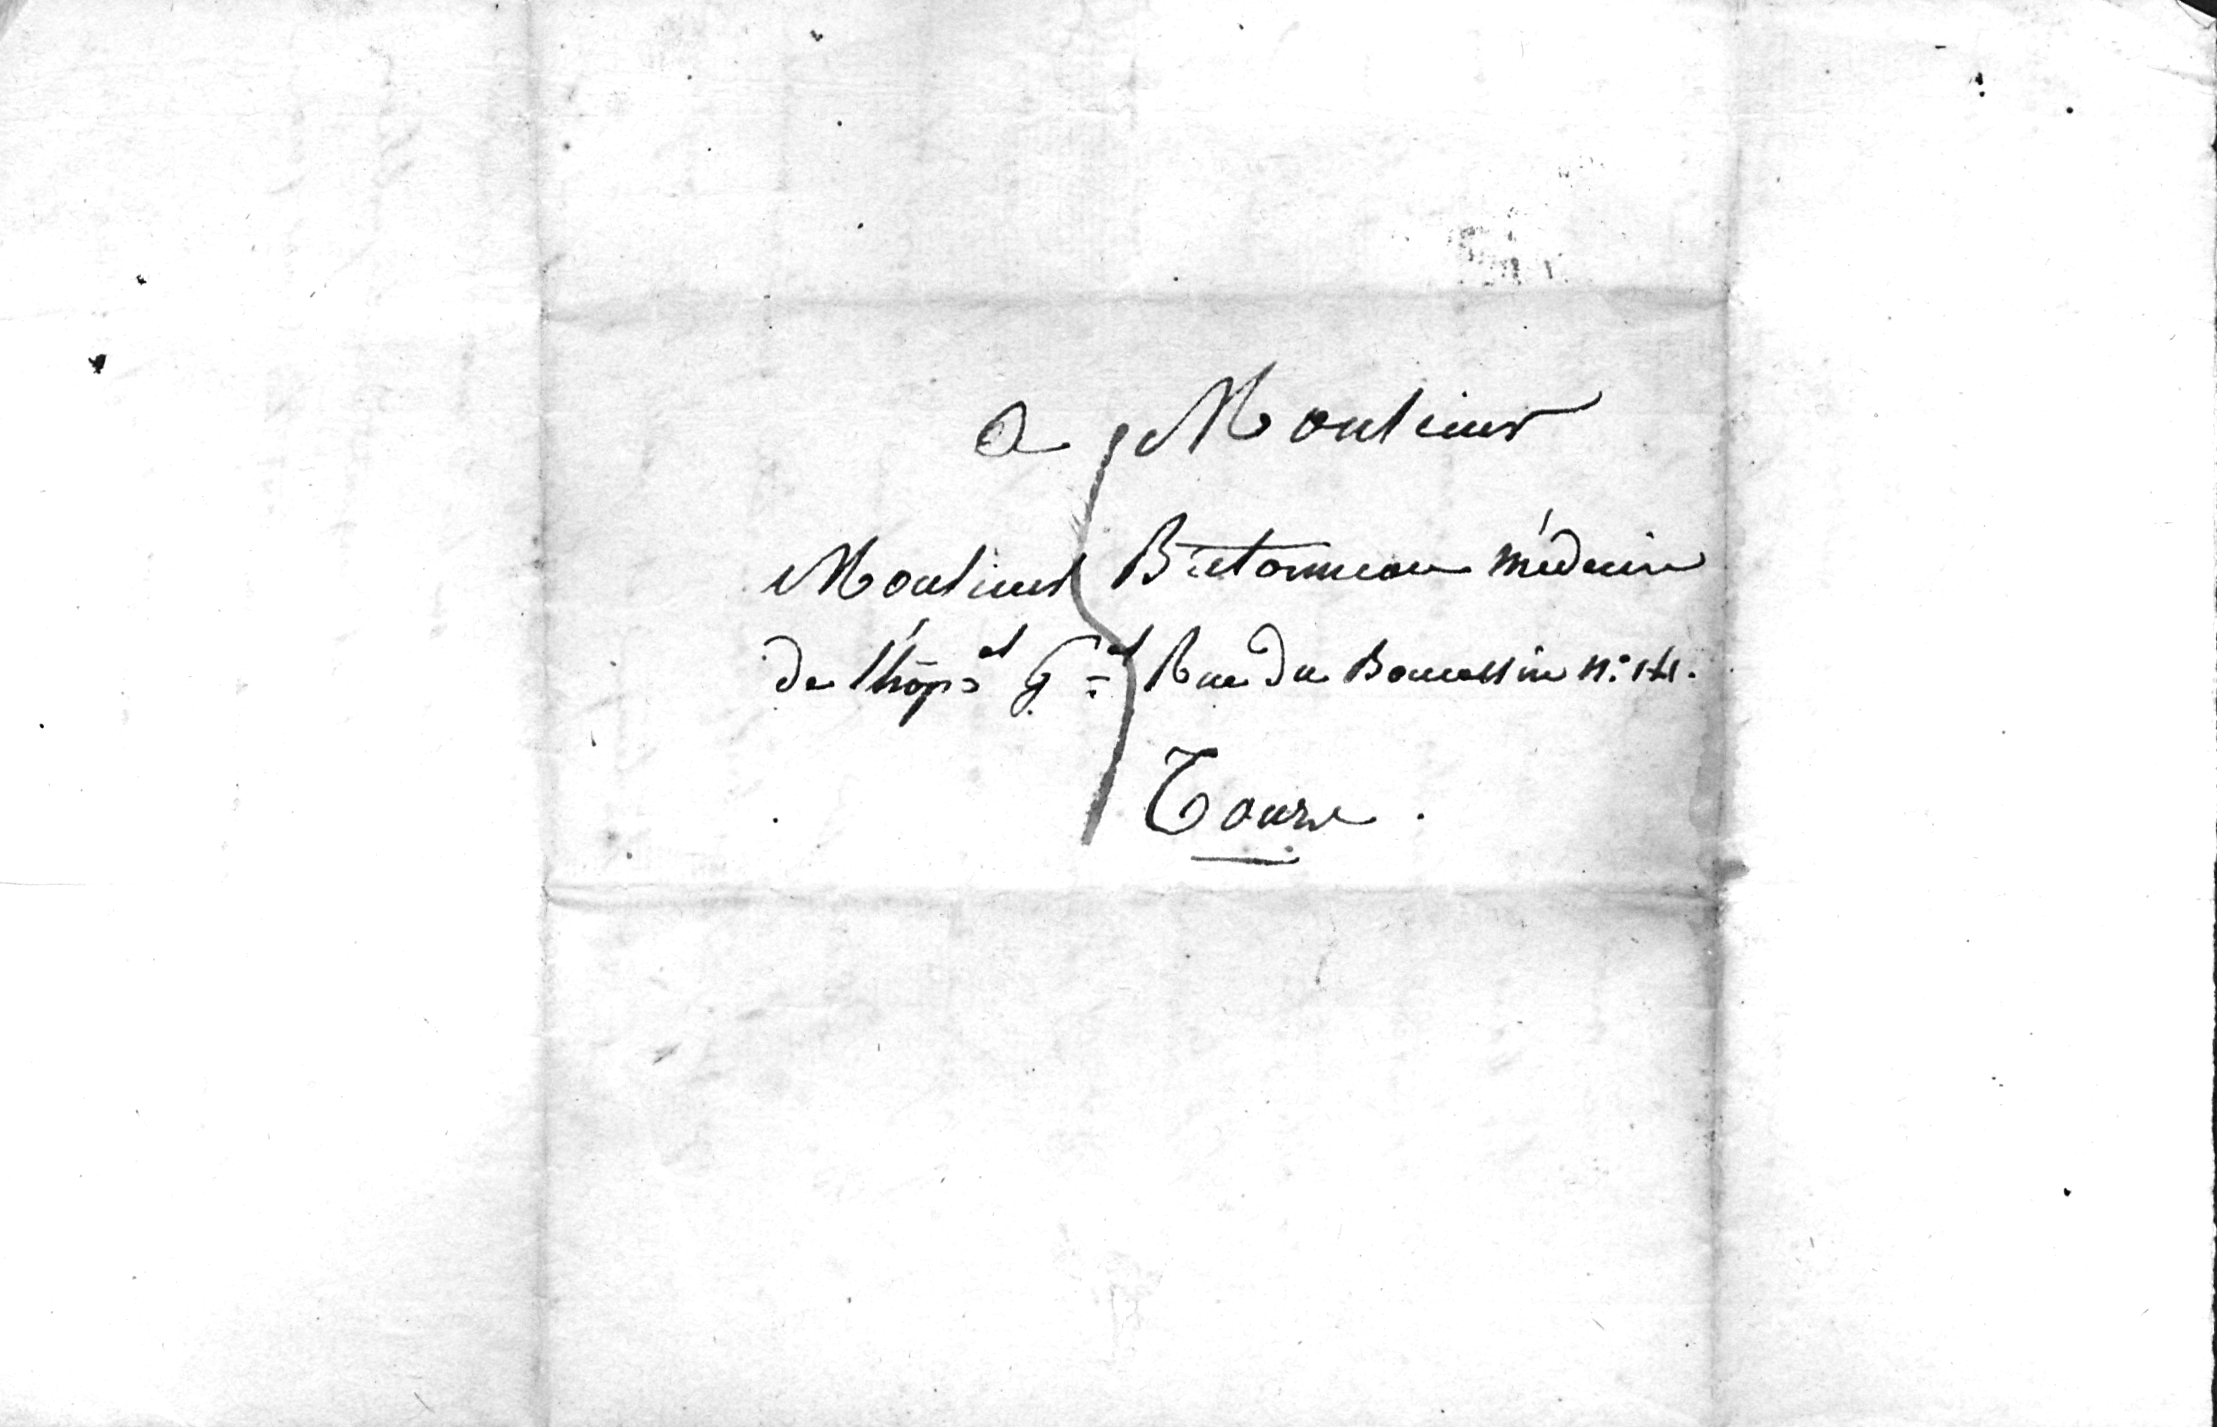 A Monsieur
Monsieur Bretonneau médecin
de l'hôpal Gal Rue du Boucassin n.° 14.
Tours.